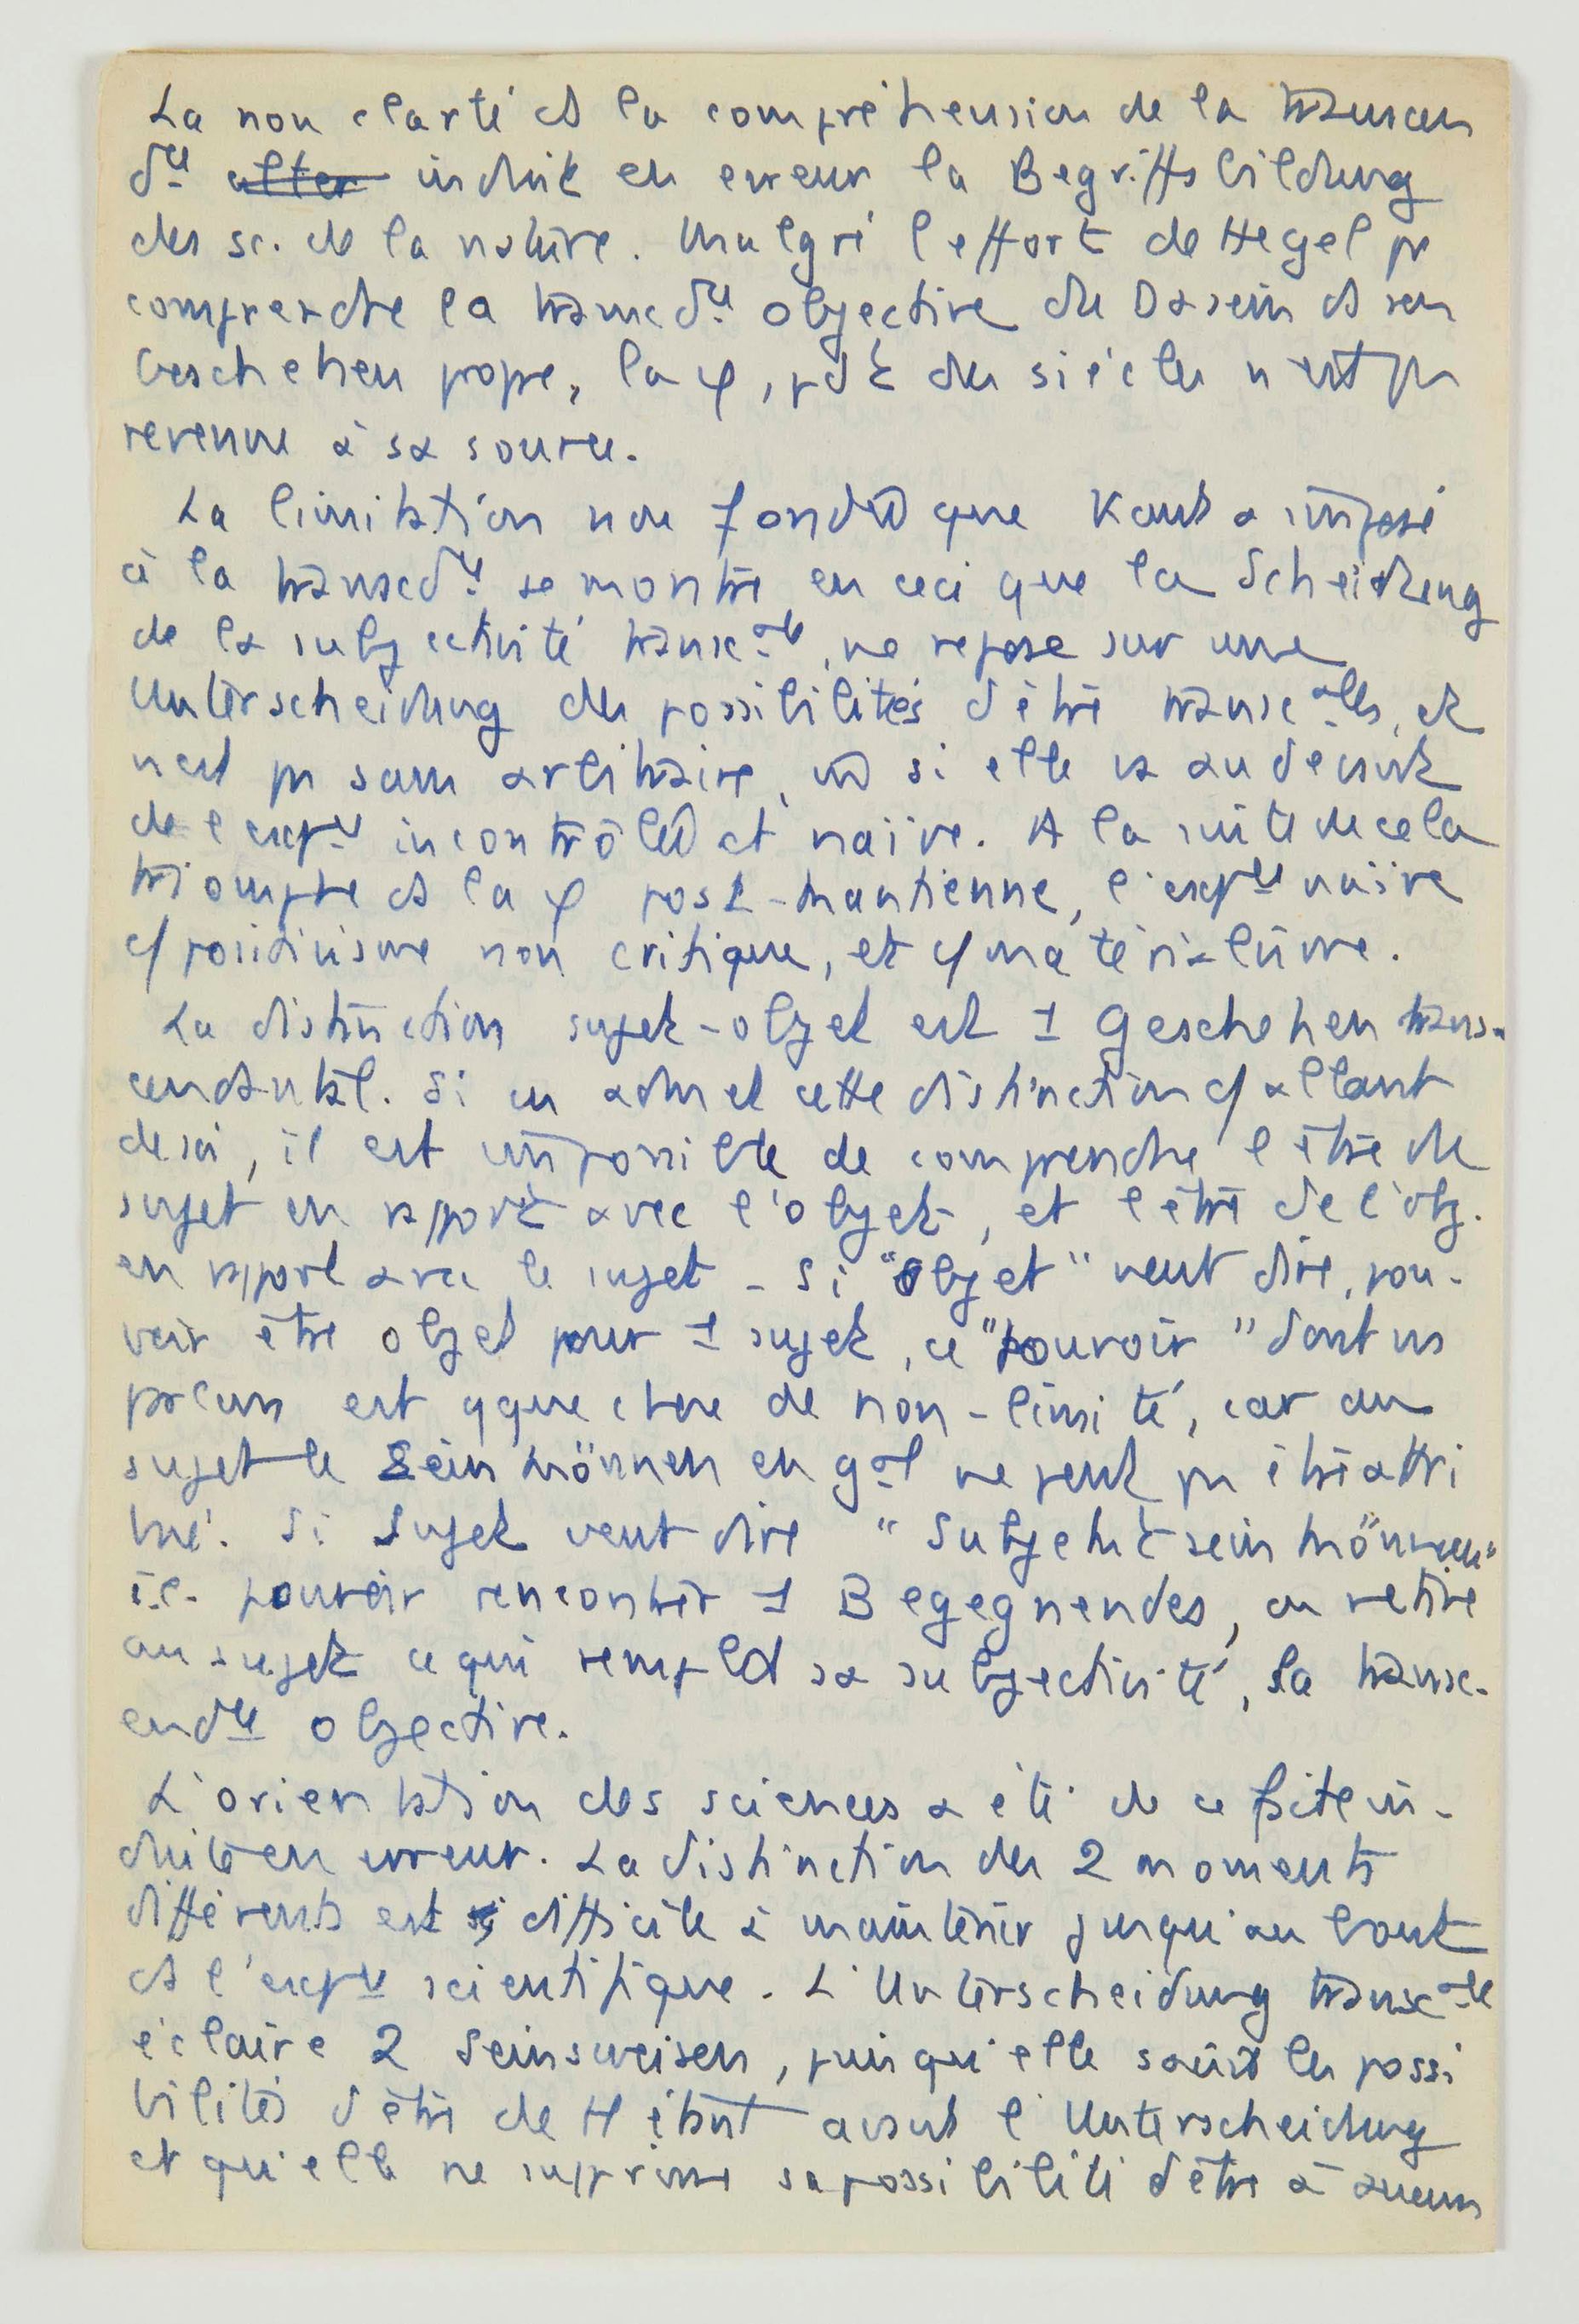 La non clarté ds la compréhension de la transcen
dce alter induit en erreur la Begriffsbildung
des sc. de la nature. Malgré l'effort de Hegel pr
comprendre la transcdce objective du Dasein ds son
Geschehen propre, la φ, pdt des siècles n'est pas
revenue à sa source.
La limitation non fondée que Kant a imposé
à la transcdce se montre en ceci que la Scheidung
de la subjectivité transcale, ne repose sur une
Unterscheidung des possibilités d'être transcalles, et
n'est pas sans arbitraire,  si elle va au devant
de l'expce incontrôlée et naïve. A la suite de cela
triomphe ds la φ post-kantienne, l'expce naïve
c/ positivisme non critique, et c/ matérialisme.
La distinction sujet-objet est 1 Geschehen trans-
cendantal. Si on admet cette distinction c/ allant
de soi, il est impossible de comprendre l'être du
sujet en rapport avec l'objet, et l'être de l'obj.
en rapport avec le sujet - Si "objet" veut dire, pou-
voir être objet pour 1 sujet, ce "pouvoir" dont ns
parlons est qque chose de non-limité, car au
sujet le Seinkönnen en gal ne peut pas être attri
bué. Si Sujet veut dire "Subjekt sein können"
i.e. pouvoir rencontrer 1 Begegnendes, on retire
au sujet ce qui remplit sa subjectivité, la transc-
endce objective.
L'orientation des sciences a été de ce fait in-
duite en erreur. La distinction des 2 moments
différents est difficile à maintenir jusqu'au bout
ds l'expce scientifique. L'Unterscheidung transcale
éclaire 2 Seinsweisen, puisqu'elle saisit les possi
bilités d'être de H étant avant l'Unterscheidung
et qu'elle ne supprime sa possibilité d'être à aucun